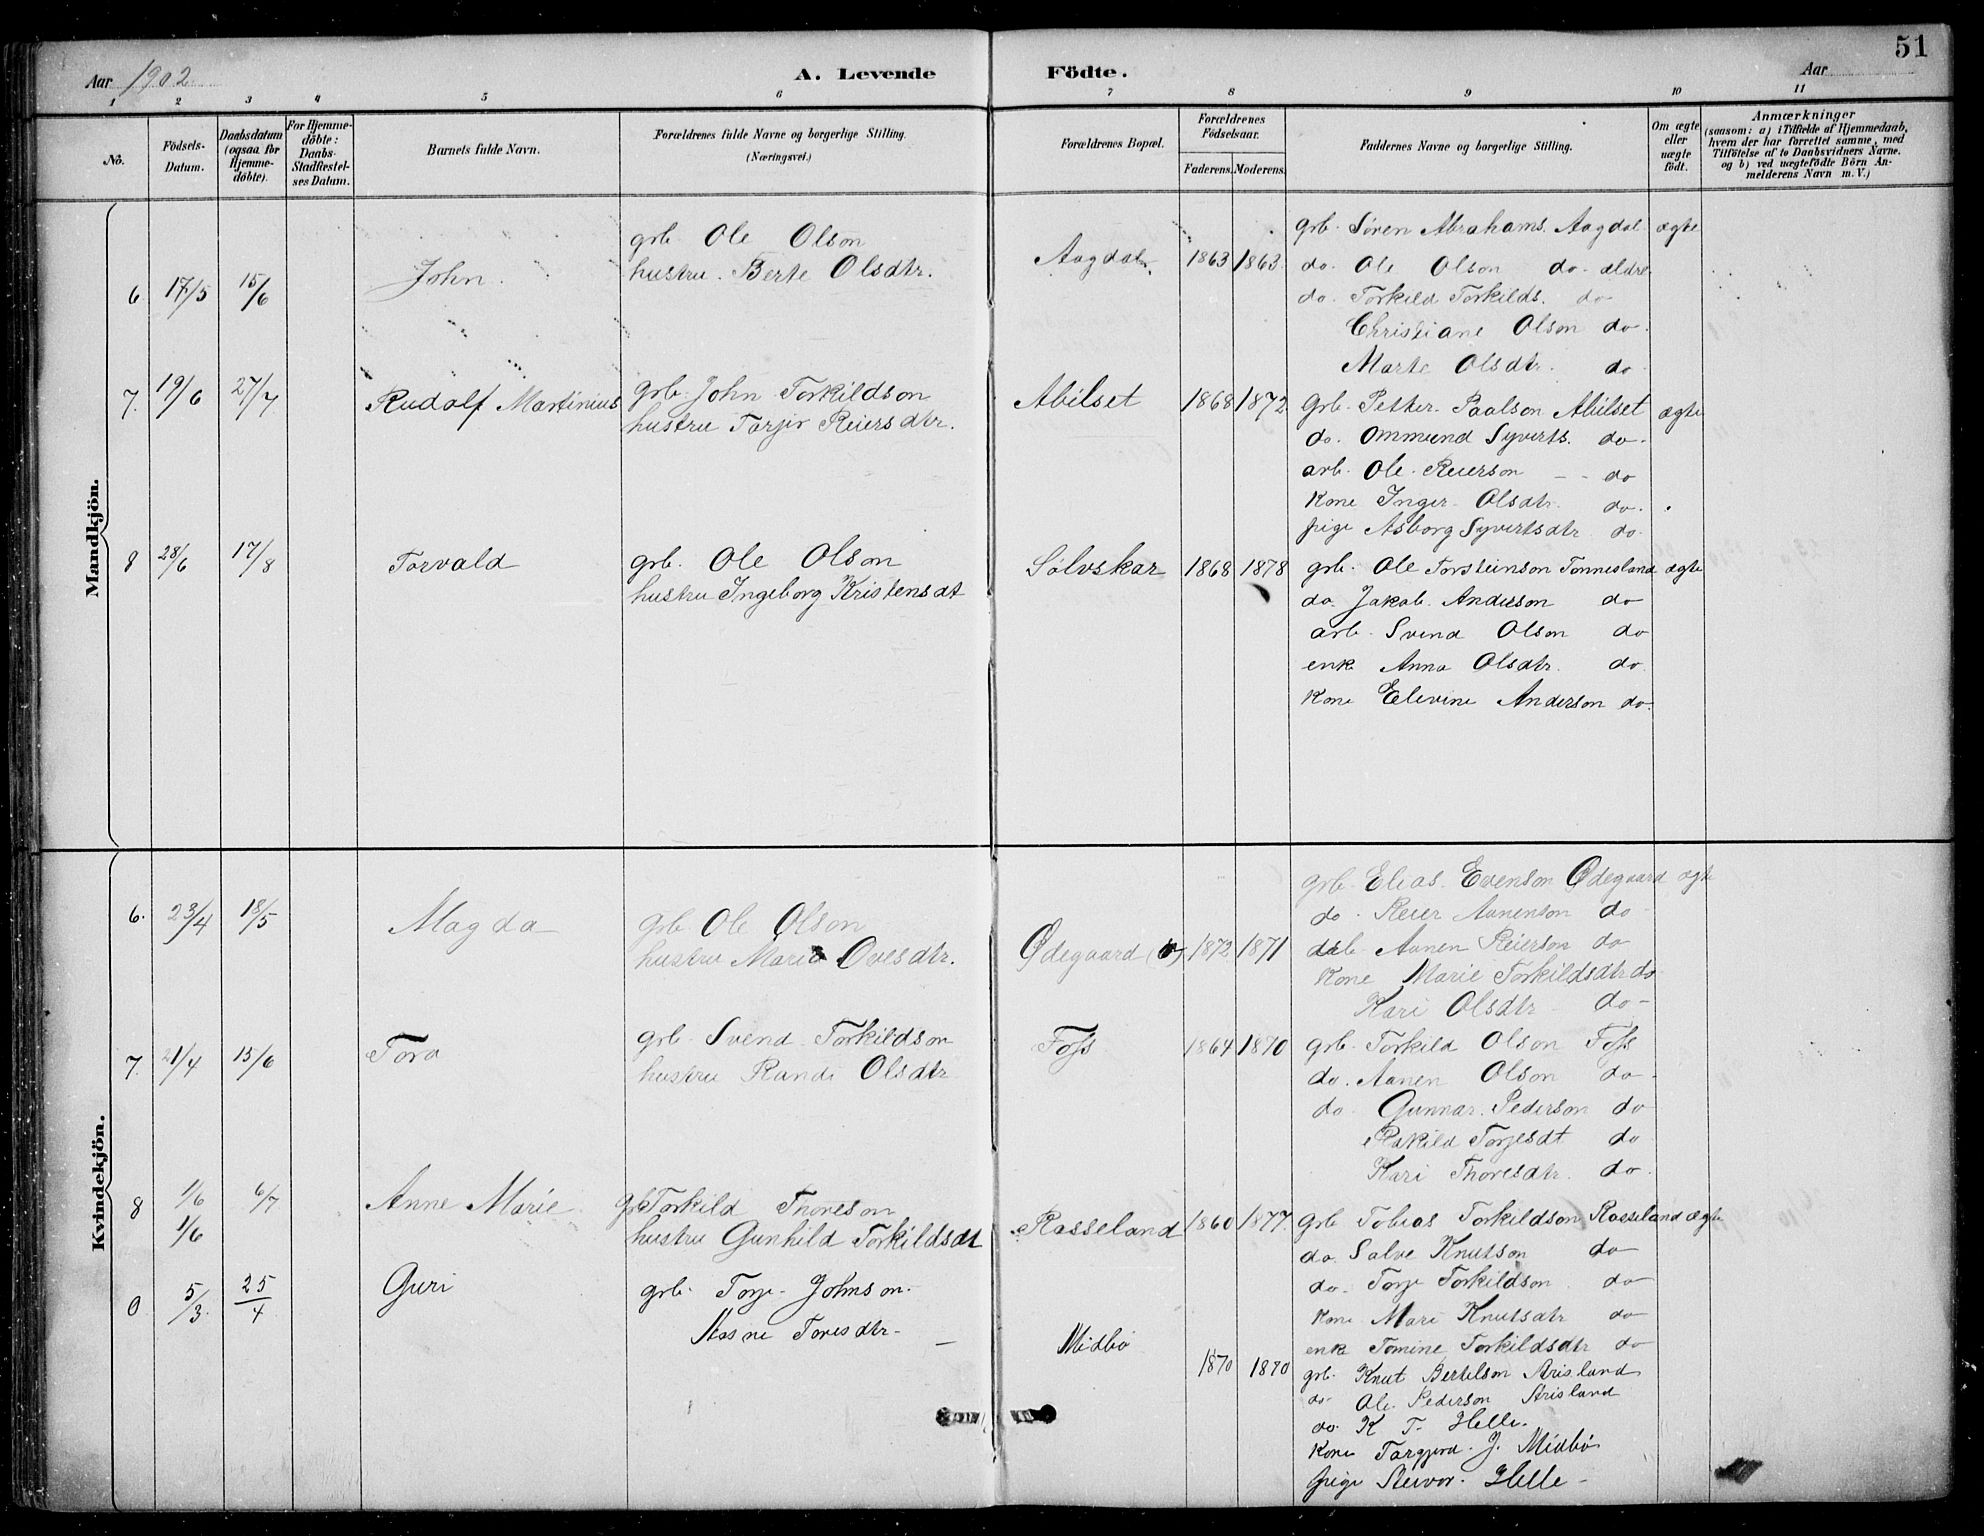 51
Aar 1902
A. Levende Födte.
Aar
1 2 3 4 5 6 7 8 9 10 11
No.
Födsels-Datum.
Daabsdatum (ogsaa for Hjemme-döbte).
For Hjemme-döbte: Daabs-Stadfæstel-ses Datum.
Barnets fulde Navn.
Forældrenes fulde Navne og borgerlige Stilling.
(Næringsvei.)
Forældrenes Bopæl.
Forældrenes Födselsaar.
Faderens. Moderens.
Faddernes Navne og borgerlige Stilling.
Om ægte eller uægte født.
Anmærkninger
(saasom: a) i Tilfælde af Hjemmedaab,
hvem der har forrettet samme, med
Tilföielse af to Daabsvidners Navne.
og b) ved uægtefödte Börn An-
melderens Navn m. V.)
Mandkjön.
6 17/5 15/6 John.
grb. Ole Olson
hustru. Berte Olsdtr.
Aagdal. 1863 1863.
grb. Søren Abrahams. Aagdal ægte
do. Ole Olson do. ældre
do. Torkild Torkilds. do
Christiane Olson do.
Marte Olsdtr. do
7. 19/6 27/7 Rudolf Martinius
grb. John Torkildson
hustru Torjir Reiersdtr.
Abilset 1868 1872
grb. Petter Paalson Abilset ægte
do. Ommund Syverts. do.
arb. Ole Reierson do
Kone Inger Olsdtr. do.
pige Asborg Syvertsdtr do.
8 28/6 17/8 Torvald
grb. Ole Olson
hustru Ingeborg Kristensdt
Sølvskar 1868 1878
grb. Ole Torsteinson Tønnesland ægte
do. Jakob Anderson do
arb. Svend Olson do
enk Anna Olsdtr. do.
Kone Elevine Anderson do.
Kvindekjön.
6. 23/4 18/5 Magda
grb Ole Olson
hustru Maria Ovesdtr.
Ødegaard 1872 1871
grb. Elias Evenson Ødegaard ægte
do. Reier Aanenson do
Aanen Reierson do
Kone Marie Torkildsdtr do
Kari Olsdtr do
7. 21/4 15/6 Tora
grb. Svend Torkildson
hustru Randi Olsdtr
Foss 1864 1870
grb. Torkild Olson Foss
do. Aanen Olson do
do Gunnar Pederson do
Rakild Torjesdt do
Kari Thoresdtr. do
8 1/6 6/7 Anne Marie
1/6
grb Torkild Thoreson
hustru Gunhild Torkildsdt
Rosseland 1860 1877.
grb Tobias Torkildson Rosseland ægte
do Salve Knutson do
do. Torje Torkildson do
Kone Mari Knutsdtr do
enk Tomine Torkildsdtr do
0 5/3. 25/4 Guri
grb. Torje Johnson.
Aasne Toresdtr
Midbø
1870 1870
grb. Knut Bertelson Arisland
do Ole Pederson Arisland
do. K T. Helle.
Kone Targjerd. J. Midbø
pige Steivor. Helle